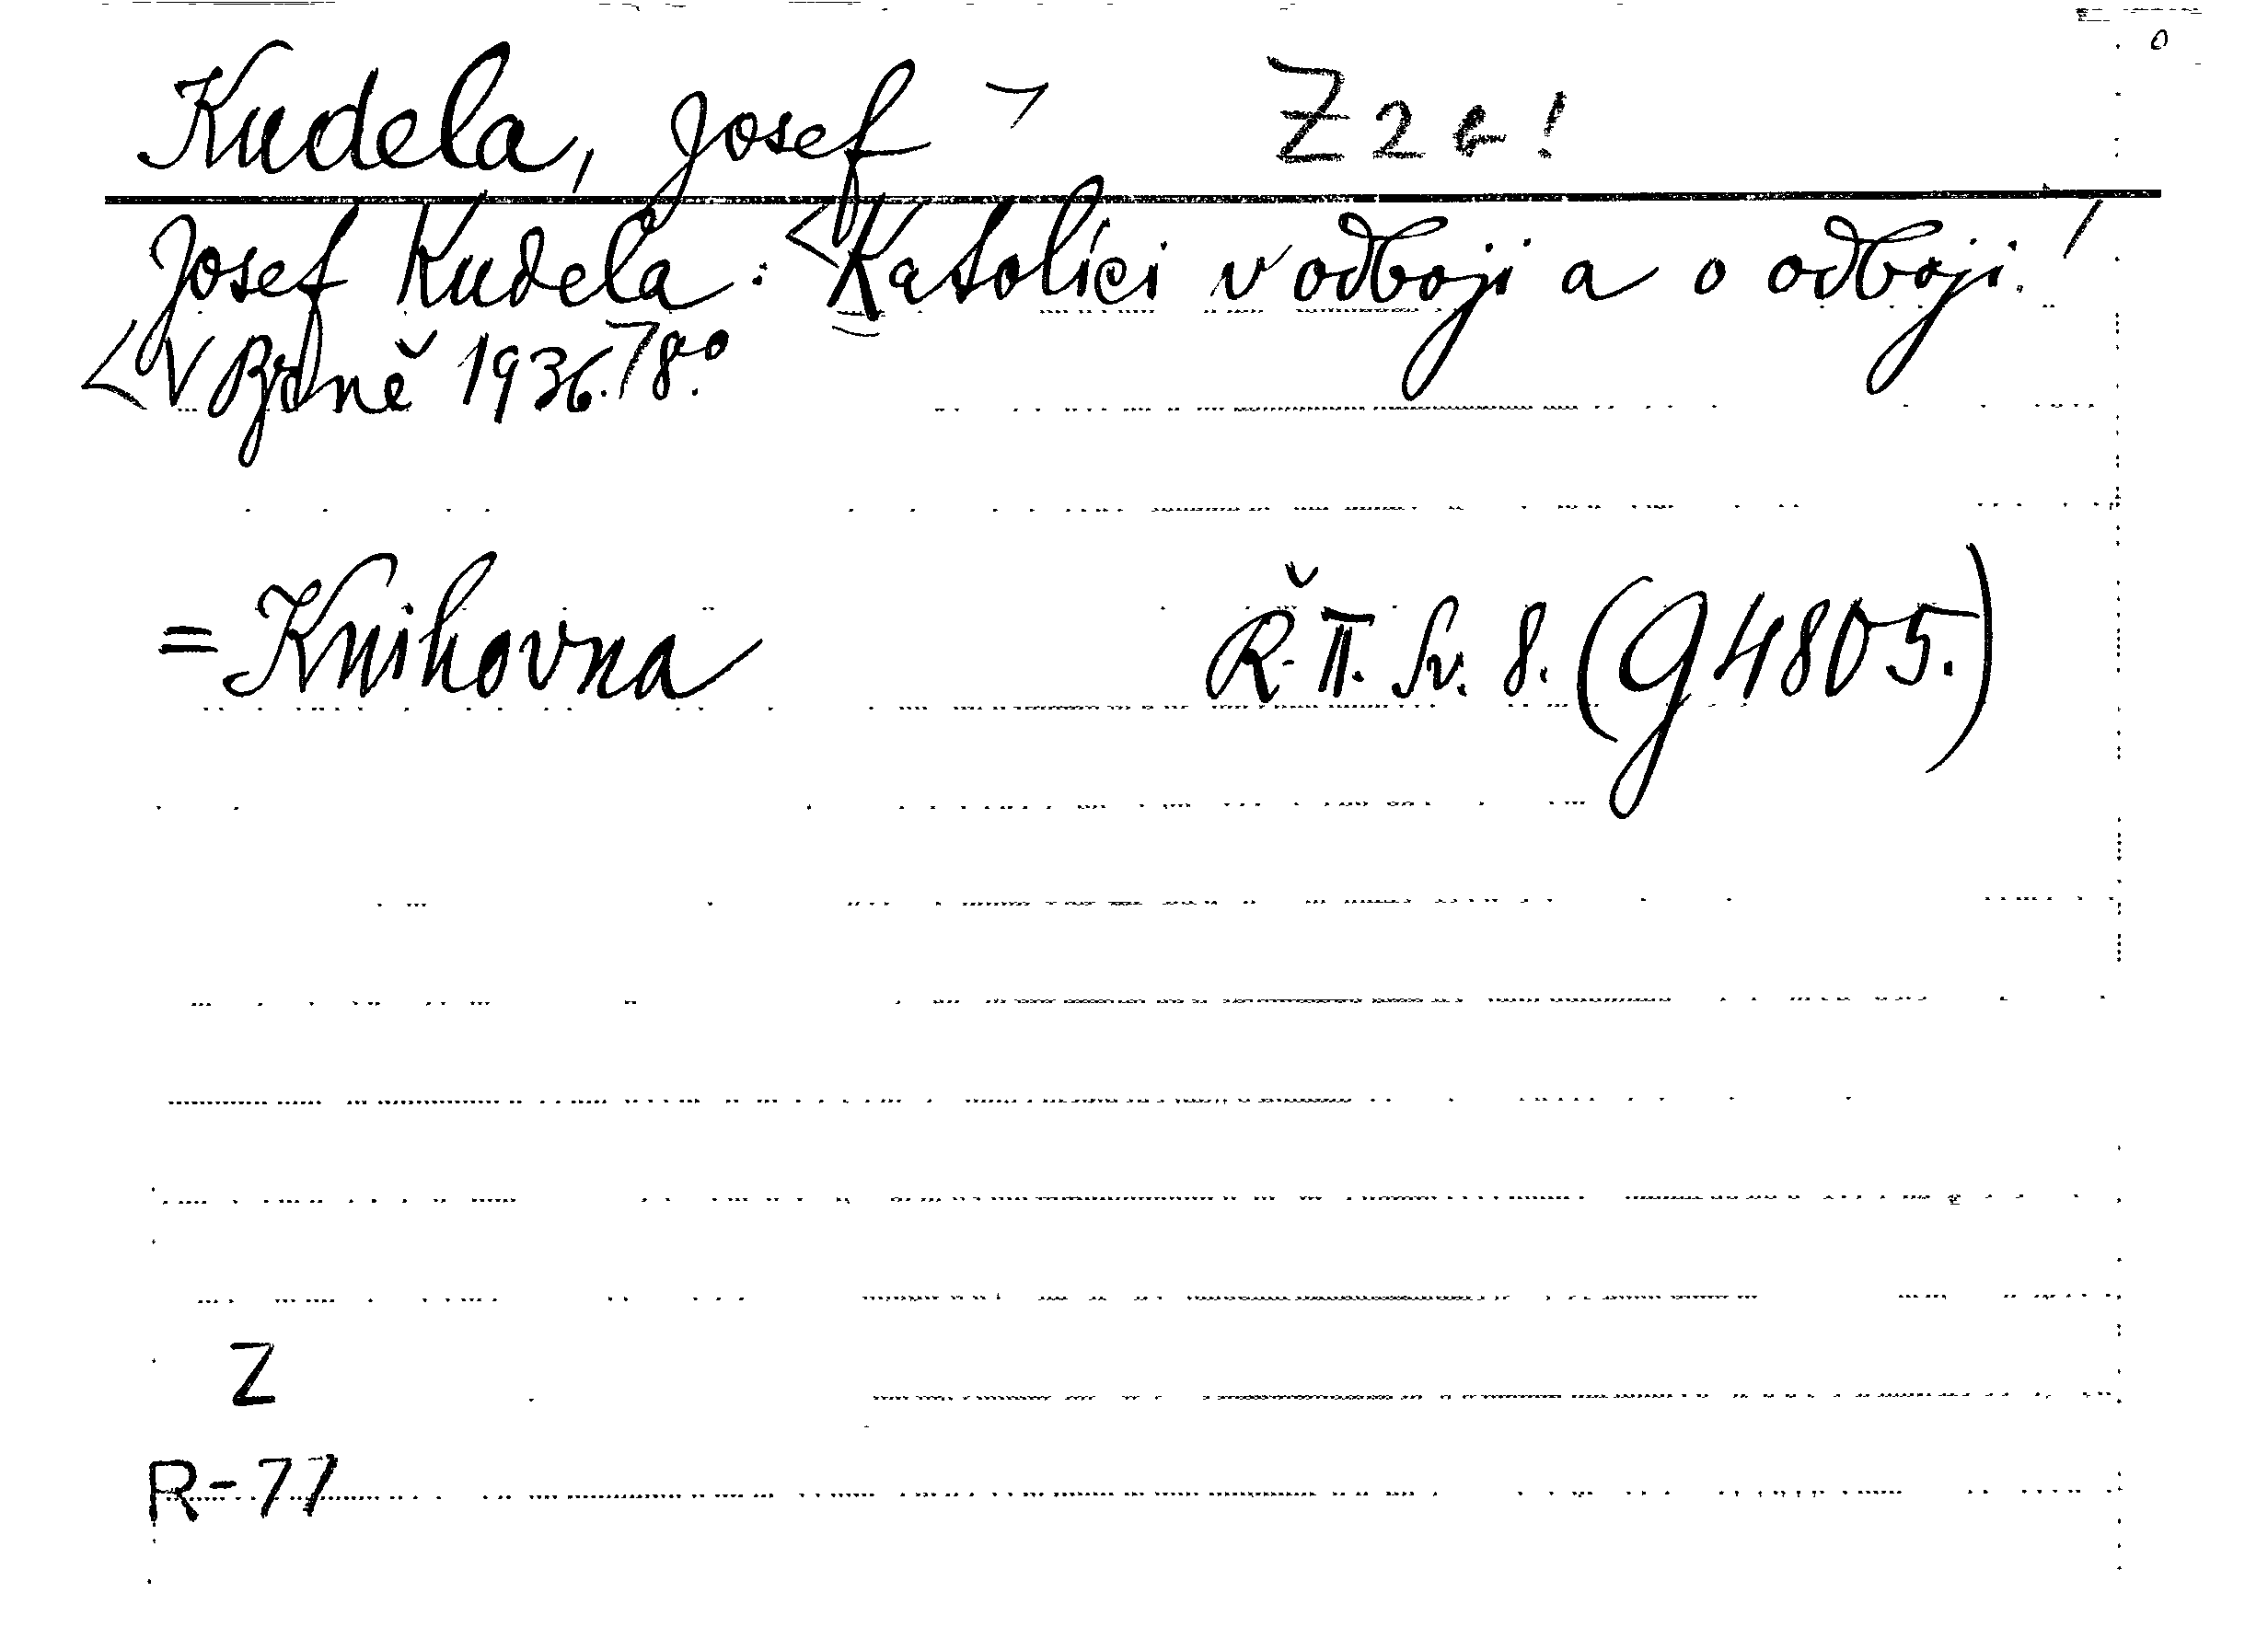 Kudela, Josef Z 2 a !
Josef Kudela: Katolíci v odboji a o odboji.
V Brně 1936. 8°.
= Knihovna Ř. II. Sv. 8. (g 4805.)
Z
R-77